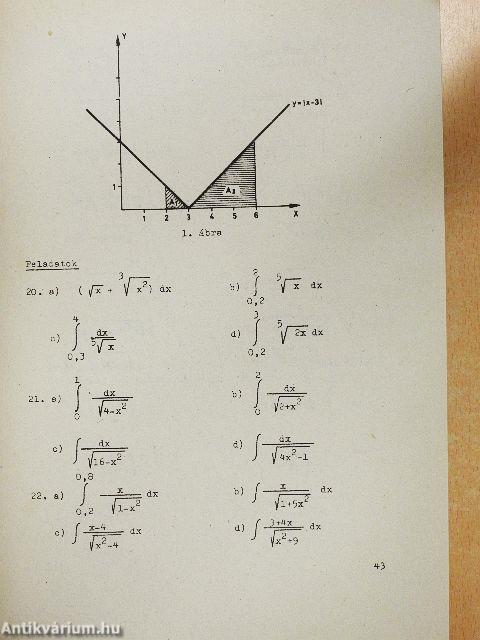 Y
y=|x-3|
1
A₁
A₂
1 2 3 4 5 6 X
1. ábra
Feladatok
20. a) (√x + ³√x²) dx b) ∫_{0,2}^{2} ⁵√x dx
c) ∫_{0,3}^{4} dx/⁵√x d) ∫_{0,2}^{3} ⁵√2x dx
21. a) ∫_{0}^{1} dx/√4-x² b) ∫_{0}^{2} dx/√2+x²
c) ∫ dx/√16-x² d) ∫ dx/√4x²-1
22. a) ∫_{0,2}^{0,8} x/√1-x² dx b) ∫ x/√1+5x² dx
c) ∫ x-4/√x²-4 dx d) ∫ 3+4x/√x²+9 dx
43
Antikvárium.hu